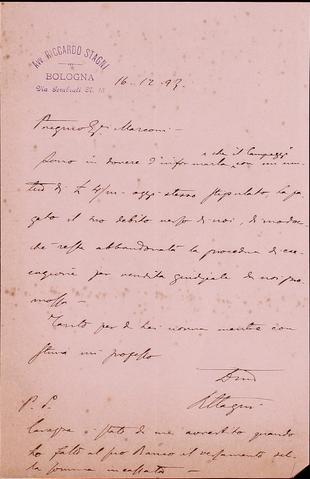 AVV. RICCARDO STAGNI
BOLOGNA
16-12-93
Pregmo Sig. Marconi -
Sono in dovere d'informarla
che il
con un
di £ oggi stesso stipulato ha pa-
gato il suo debito verso di noi, di modo
che resta abbandonata la procedura di
per vendita giudiziale da noi pro
mossa -
Tanto per di Lei norma mentre con
stima mi professo
RStagni
P. S.
stato da me avvertito quando
ho fatto al suo Banco il versamento del-
la somma incassata -